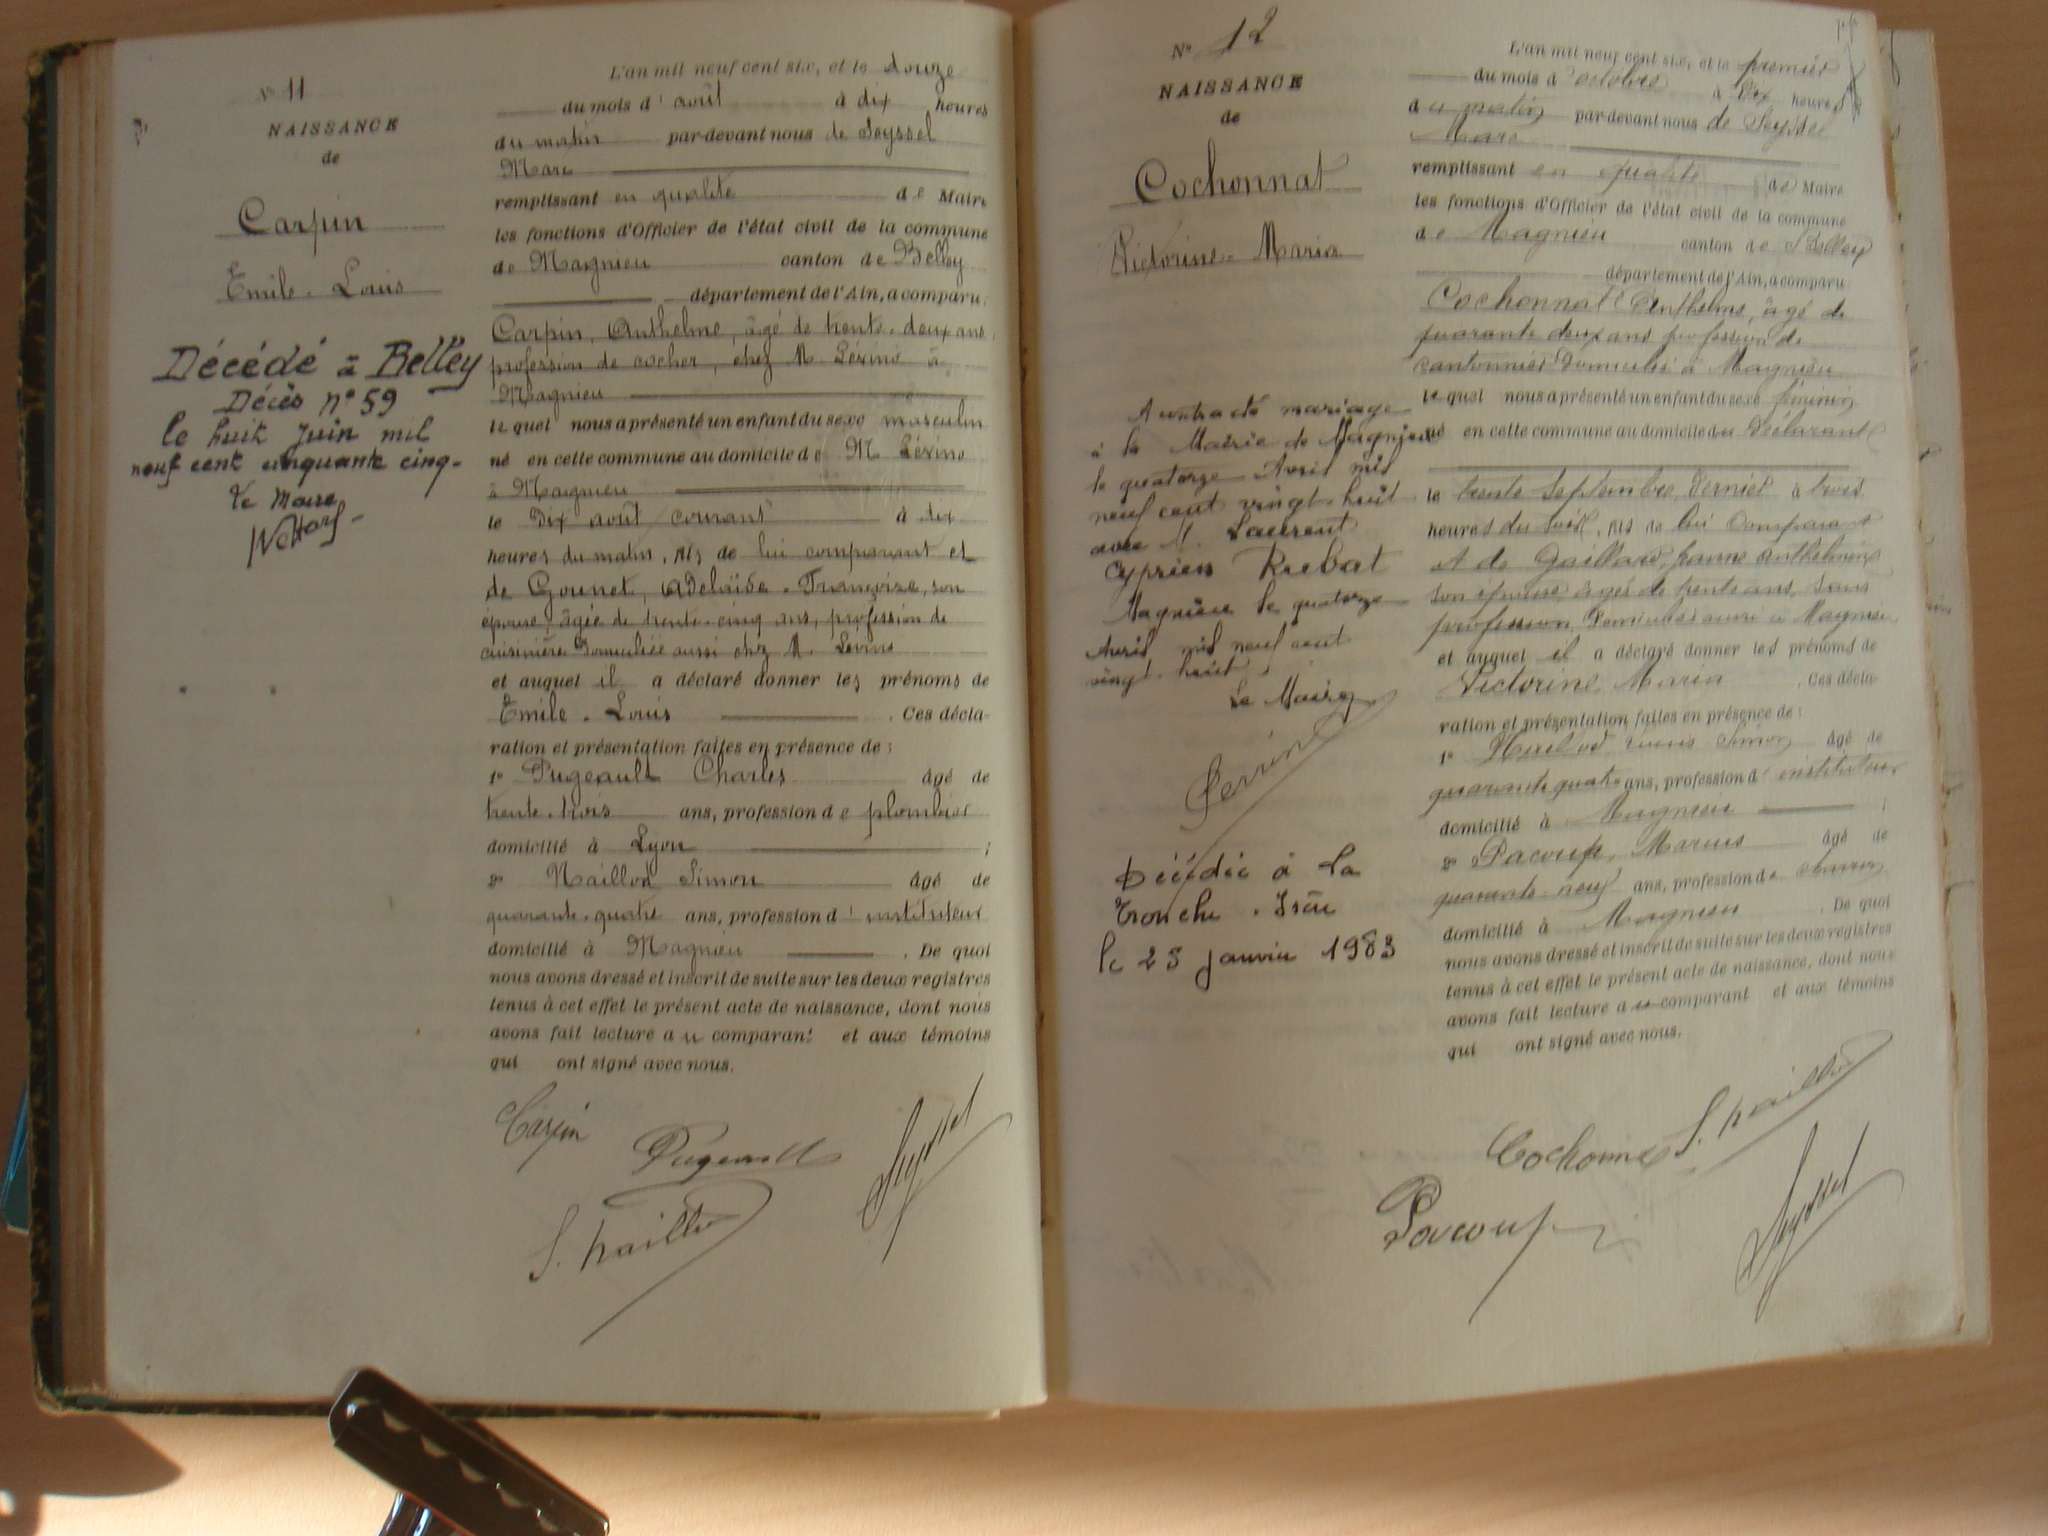 N° 11
NAISSANCE
de
Carpin
Emile-Louis
Décédé à Belley
Décès n° 59
le huit juin mil
neuf cent cinquante cinq-
Le Maire
L'an mil neuf cent six, et le douze
du mois d'août à dix heures
du matin par-devant nous de Seyssel
Marc
remplissant en qualité de Maire
les fonctions d'Officier de l'état civil de la commune
de Magnieu canton de Belley
département de l'Ain, a comparu:
Carpin, Anthelme, âgé de trente-deux ans,
profession de cocher, chez M. à
Magnieu
lequel nous a présenté un enfant du sexe masculin
né en cette commune au domicile de M.
à Magnieu
le dix août courant à dix
heures du matin, fils de lui comparant et
de Gounet, Adelaïde-Françoise, son
épouse, âgée de trente-cinq ans, profession de
cuisinière domiciliée aussi chez M.
et auquel il a déclaré donner les prénoms de
Emile-Louis. Ces décla-
ration et présentation faites en présence de:
1° Pugeault Charles âgé de
trente-trois ans, profession de plombier
domicilié à Lyon;
2° Naillod Simon âgé de
quarante-quatre ans, profession d'instituteur
domicilié à Magnieu. De quoi
nous avons dressé et inscrit de suite sur les deux registres
tenus à cet effet le présent acte de naissance, dont nous
avons fait lecture au comparant et aux témoins
qui ont signé avec nous.
Carpin
Pugeault
Seyssel
S. Naillod
N° 12
NAISSANCE
de
Cochonnat
Victorine-Maria
A contracté mariage
à la Mairie de Magnieu
le quatorze Avril mil
neuf cent vingt-huit
avec M. Laurent
Cyprien Rubat
Magnieu le quatorze
Avril mil neuf cent
vingt-huit.
Le Maire
Perrin
Décédée à la
Tronche. Isère
le 23 janvier 1983
L'an mil neuf cent six, et le premier
du mois d'octobre à dix heures
du matin par-devant nous de Seyssel
Marc
remplissant en qualité de Maire
les fonctions d'Officier de l'état civil de la commune
de Magnieu canton de Belley
département de l'Ain, a comparu
Cochonnat Anthelme, âgé de
quarante deux ans profession de
cantonnier domicilié à Magnieu
lequel nous a présenté un enfant du sexe féminin
né en cette commune au domicile du déclarant
le trente Septembre dernier à trois
heures du soir, fils de lui comparant
et de Gaillard, Jeanne Anthelmine
son épouse âgée de trente ans, sans
profession, domiciliée aussi à Magnieu
et auquel il a déclaré donner les prénoms de
Victorine Maria. Ces décla-
ration et présentation faites en présence de:
1° Simon âgé de
quarante quatre ans, profession d'instituteur
domicilié à Magnieu;
2° Pacoup, Marius âgé de
quarante-neuf ans, profession de
domicilié à Magnieu. De quoi
nous avons dressé et inscrit de suite sur les deux registres
tenus à cet effet le présent acte de naissance, dont nous
avons fait lecture au comparant et aux témoins
qui ont signé avec nous.
Cochonnat S. Naillod
Pacoup
Seyssel